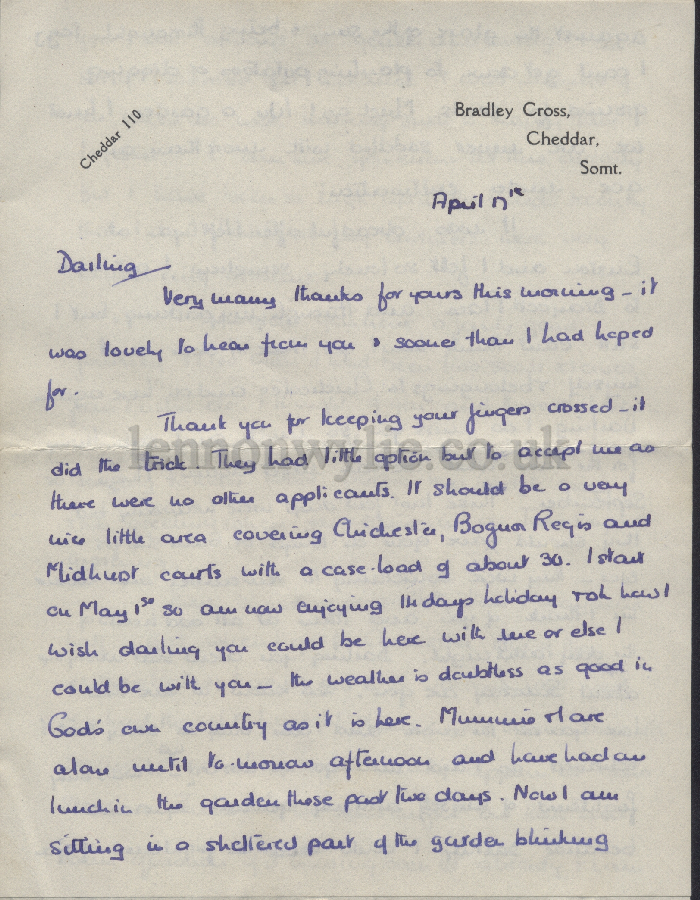 Cheddar 110
Bradley Cross,
Cheddar,
Somt.
April 17th
Darling
Very many thanks for yours this morning - it
was lovely to hear from you & sooner than I had hoped
for.
Thank you for keeping your fingers crossed - it
lennonwylie.co.uk
did the trick. They had little option but to accept me as
there were no other applicants. It should be a very
nice little area covering Chichester, Bognor Regis and
Midhurst courts with a case-load of about 30. I start
on May 1st so am now enjoying 14 days holiday how I
wish darling you could be here with me or else I
could be with you - the weather is doubtless as good in
God's own country as it is here. Mummie & I are
alone until to-morrow afternoon and have had our
lunch in the garden these past two days. Now I am
sitting in a sheltered part of the garden blinking